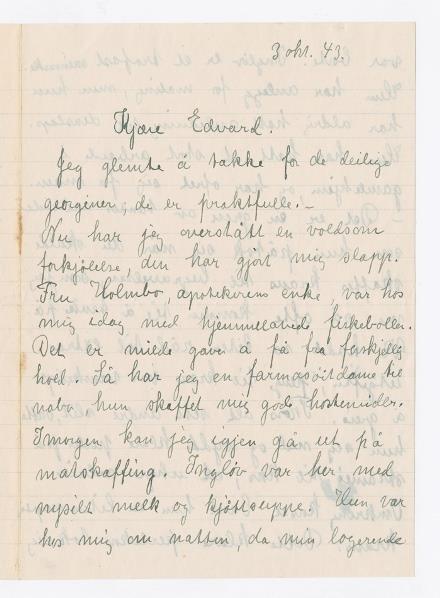 3 okt. 43.
Kjære Edvard.
Jeg glemte å takke for de deilige
georginer, de er praktfulle. –
Nu har jeg overstått en voldsom
forkjølelse, den har gjort mig slapp.
Fru Holmbo, apotekerens enke, var hos
mig idag med hjemmelavede fiskeboller.
Det er milde gaver å få fra forskjellig
hold. Så har jeg en farmasøitdame til
nabo hun skaffet mig gode hostemidler.
Imorgen kan jeg igjen gå ut på
matskaffing. Ingløv var her med
nysilt melk og kjøttsuppe. Hun var
hos mig om natten, da min logerende